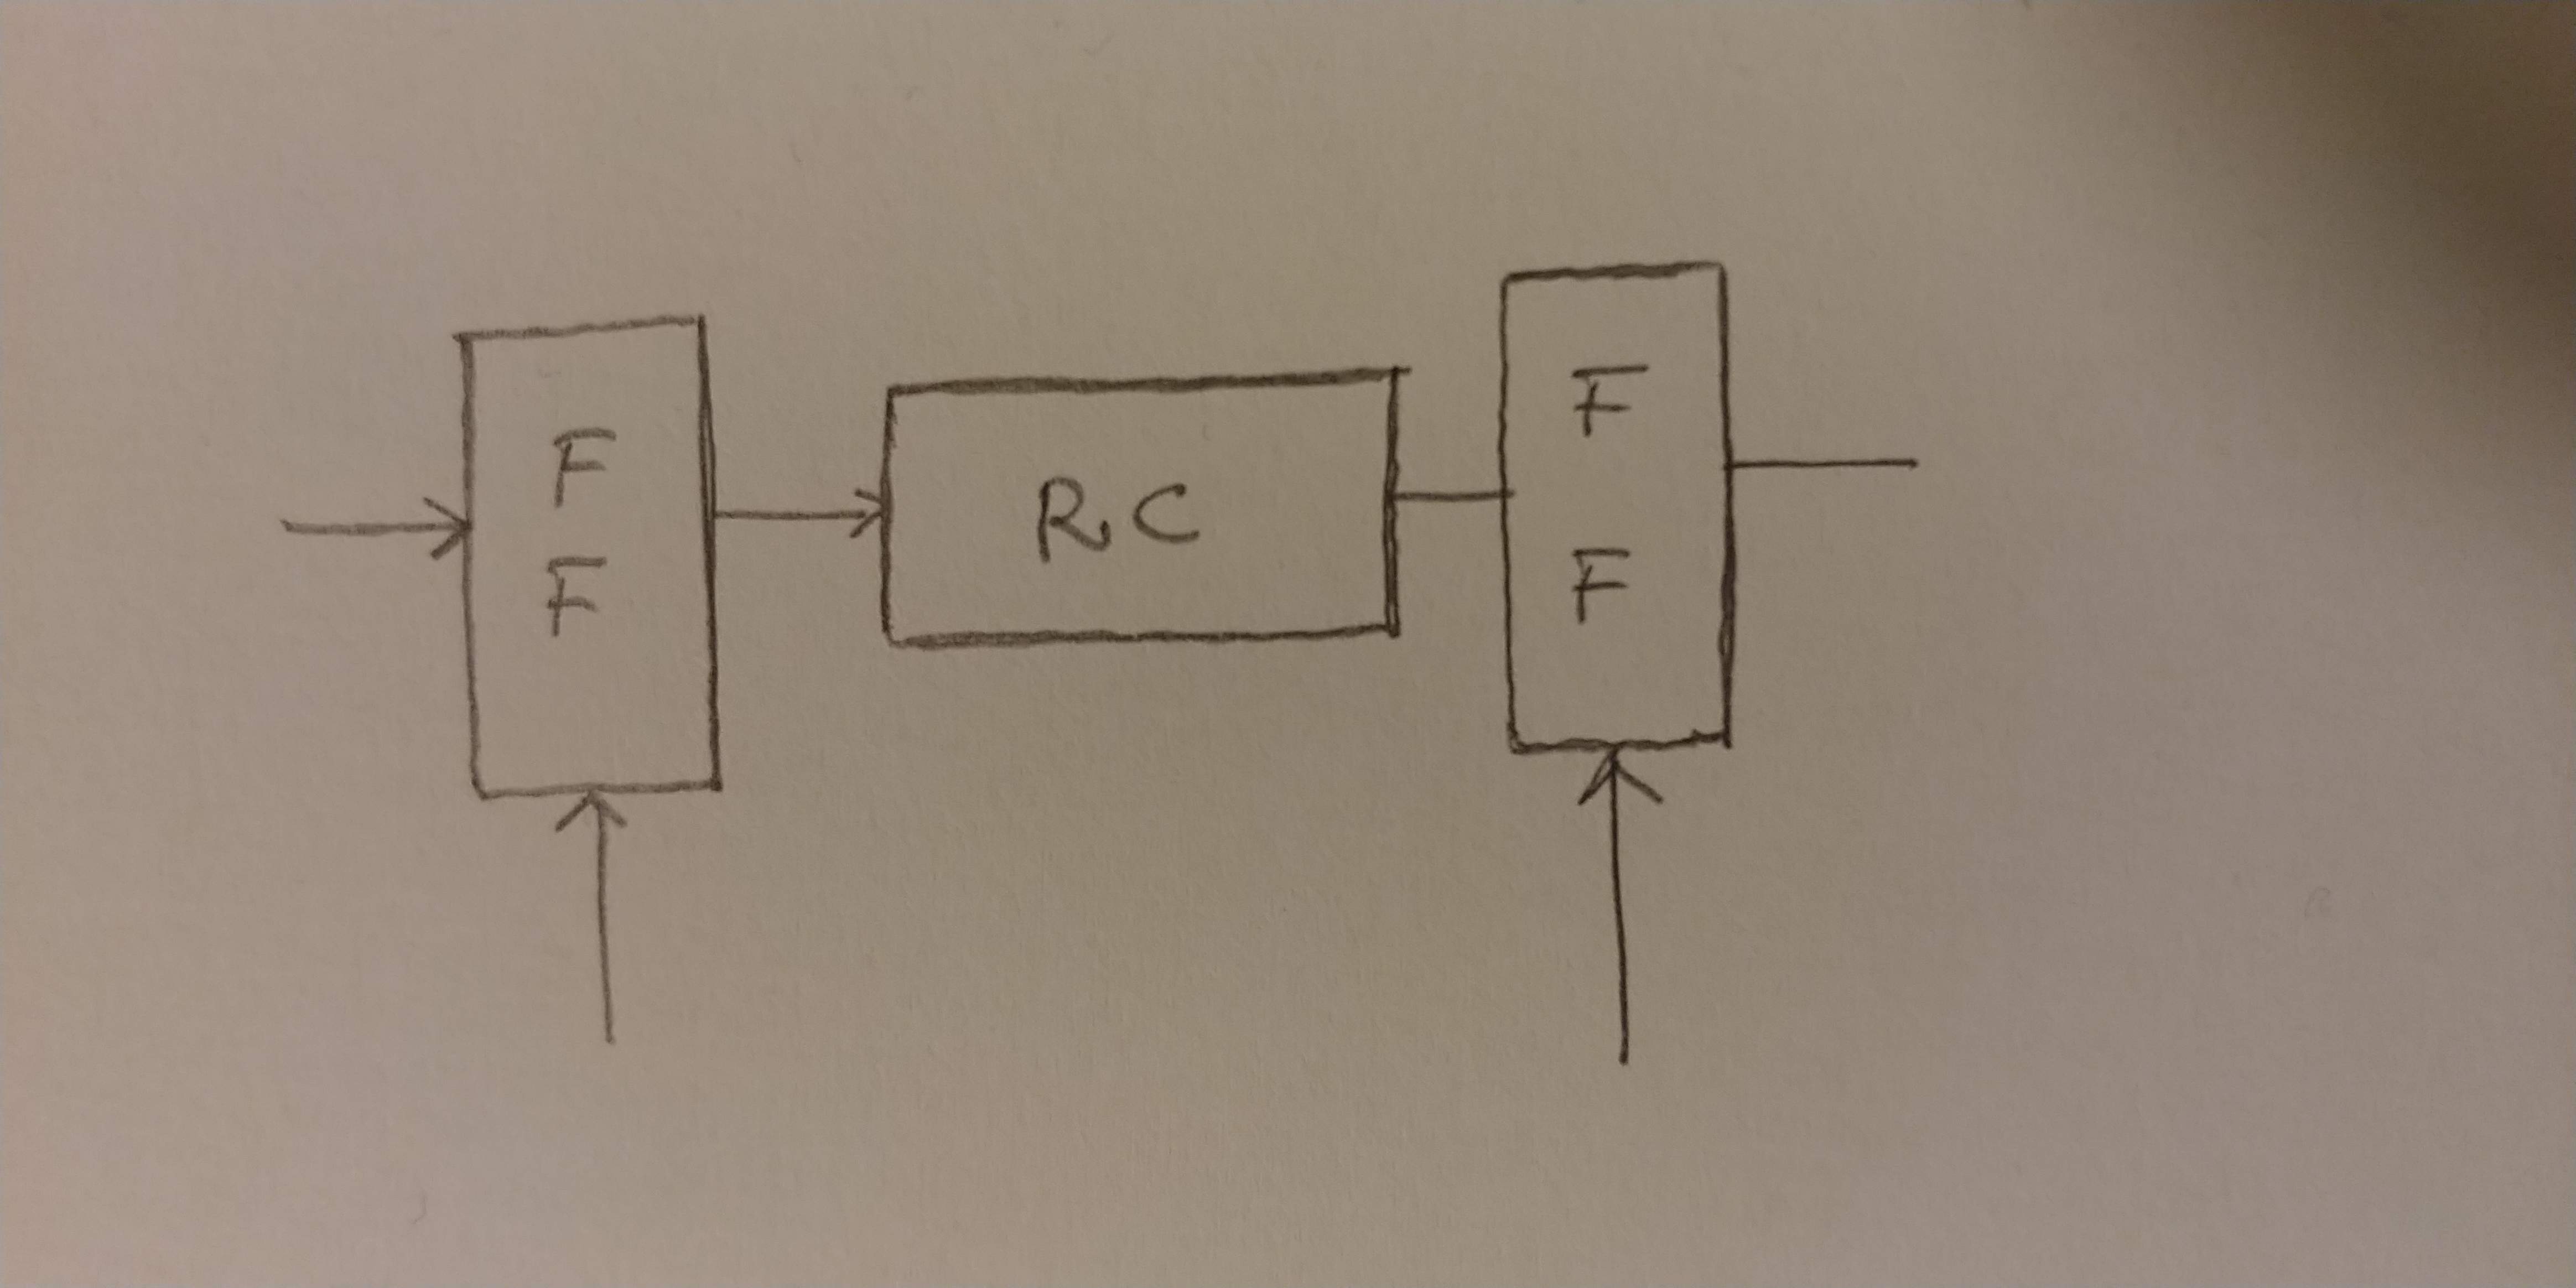 F
F
RC
F
F